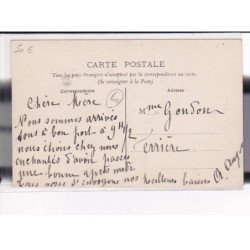 50 €
CARTE POSTALE
Tous les pays étrangers n'acceptent pas la correspondance au recto.
(Se renseigner à la Poste)
Correspondance
Adresse
Chère Mère
Nous sommes arrivés
à bon port à 9 h 1/2
nous étions chez nous
enchantés d'avoir passés
une bonne après midi
nous vous envoyons nos meilleurs baisers
Mme Gondon